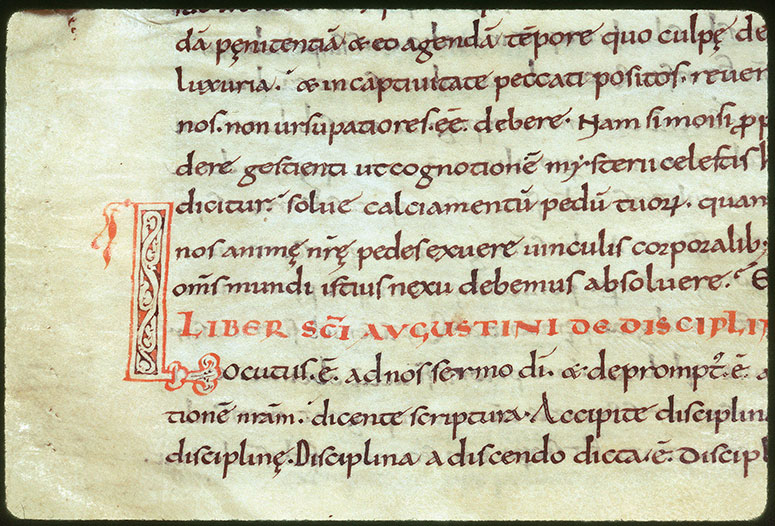 dā pęnitentiā · & eo agendā tēpore quo culpę de
luxuria. & in captiuitate peccati positos. reuer
nos. non ursupatiores. eē. debere. Nam si moisi ꝓp
dere gestienti ut cognotionē mysterii celestis h
dicitur. solue calciamentū pedū tuoꝝ. quan
nos animę nr̄ę pedes exuere uinculis corporalib;
om̄s mundi istius nexu debemus absoluere.
LIBER SC̄I AVGUSTINI DE DISCIPLIN
Locutus. ē. ad nos sermo dī. & deprompt᷒. ē. a
tionē nrām. dicente scriptura. Accipite disciplina
disciplinę. Disciplina a discendo dicta. ē. Discipl